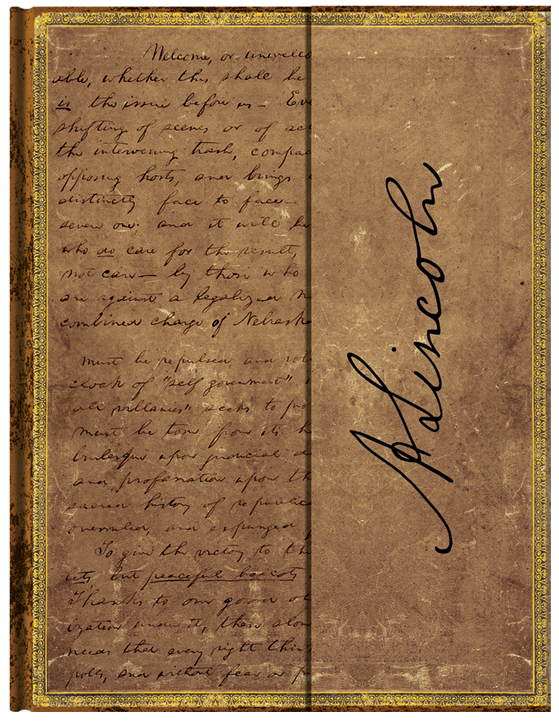 Welcome, or unwelco
able, whether this shall be
is the issue before us — Eve
shifting of scenes or of act
the intervening trash, compac
opposing hosts, and brings
distinctly face to face—
seven one: and it will be
who do care for the result,
not care — by those who
are against a legalized n
combined charge of Nebrask
must be repulsed, and rol
cloak of "self government"
all villanies" seeks to pro
must be torn from its h
burlesque upon judicial d
and profanation upon th
sacred history of republica
overruled, and expunged f
To give the victory to th
cts, but peaceful ballots
Thanks to our good ol
ization under it, these alon
necessary that every right thin
polls, and without fear or p
A Lincoln